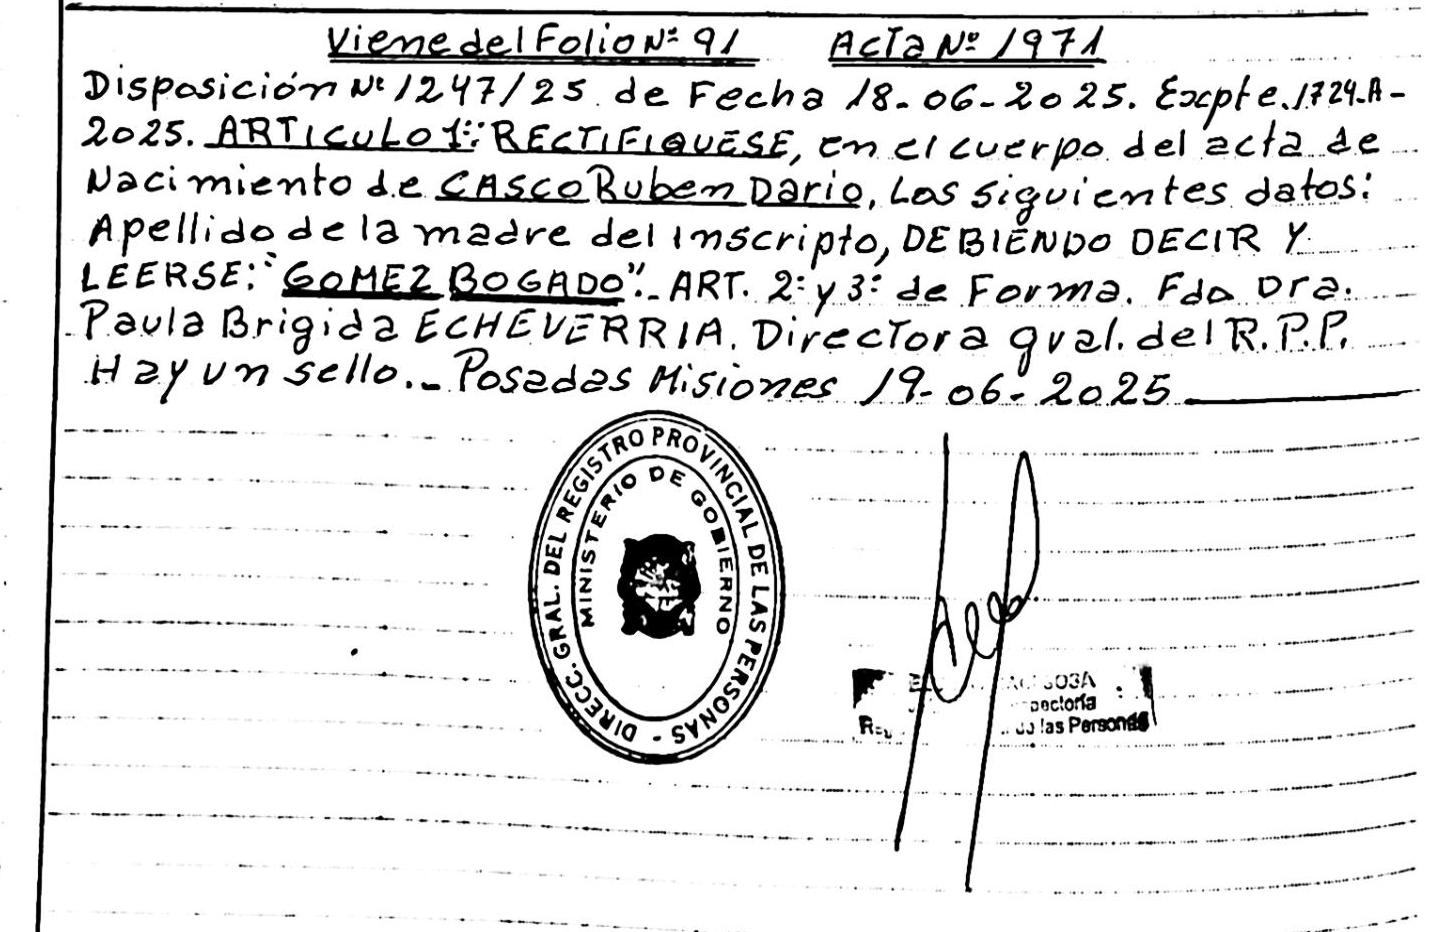 Viene del Folio Nº 91 Acta Nº 1971
Disposición Nº 1247/25 de Fecha 18-06-2025. Expte. 1724-A-
2025. ARTICULO 1º: RECTIFIQUESE, en el cuerpo del acta de
Nacimiento de CASCO Ruben Dario, Los siguientes datos:
Apellido de la madre del inscripto, DEBIENDO DECIR Y
LEERSE: "GOMEZ BOGADO". ART. 2º y 3º de Forma. Fdo Dra.
Paula Brigida ECHEVERRIA. Directora gral. del R.P.P.
Hay un sello._ Posadas Misiones 19-06-2025
DIRECC. GRAL. DEL REGISTRO PROVINCIAL DE LAS PERSONAS -
MINISTERIO DE GOBIERNO
las Personas